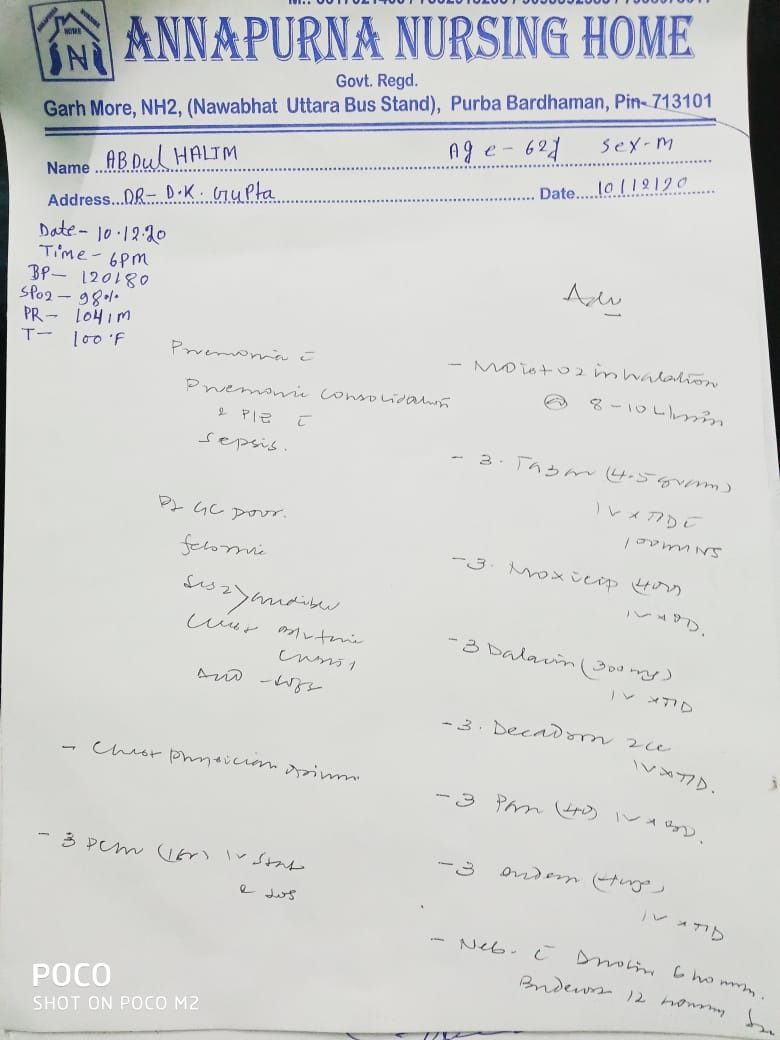 HOME
N
ANNAPURNA NURSING HOME
Govt. Regd.
Garh More, NH2, (Nawabhat Uttara Bus Stand), Purba Bardhaman, Pin- 713101
Name ABDul HALIM Age - 62y Sex - M
Address DR- D.K. Gupta Date 10/12/20
Date - 10.12.20
Time - 6PM
BP - 120/80
SPO2 - 98%
PR - 104/M
T - 100°F
Pnemonia c̄
Pnemonic consolidation
sepsis.
Pt GC poor.
febrile
S1S2 audible
Chest
- Chest physician
- PCM (1gm) IV Stat
& SOS
Adv
- Moist O2 inhalation
@ 8-10 L/min
- Tazar (4.5 gram)
IV x TID c̄
100ml NS
- Moxicip 400
IV x OD.
- Dalacin (300mg)
IV x TID
- Decadron 2cc
IV x TID.
- Pan (40) IV x BD.
- Ondem (4mg)
IV x TID
- Neb. c̄ Duolin 6 hourly.
12 hourly
POCO
SHOT ON POCO M2